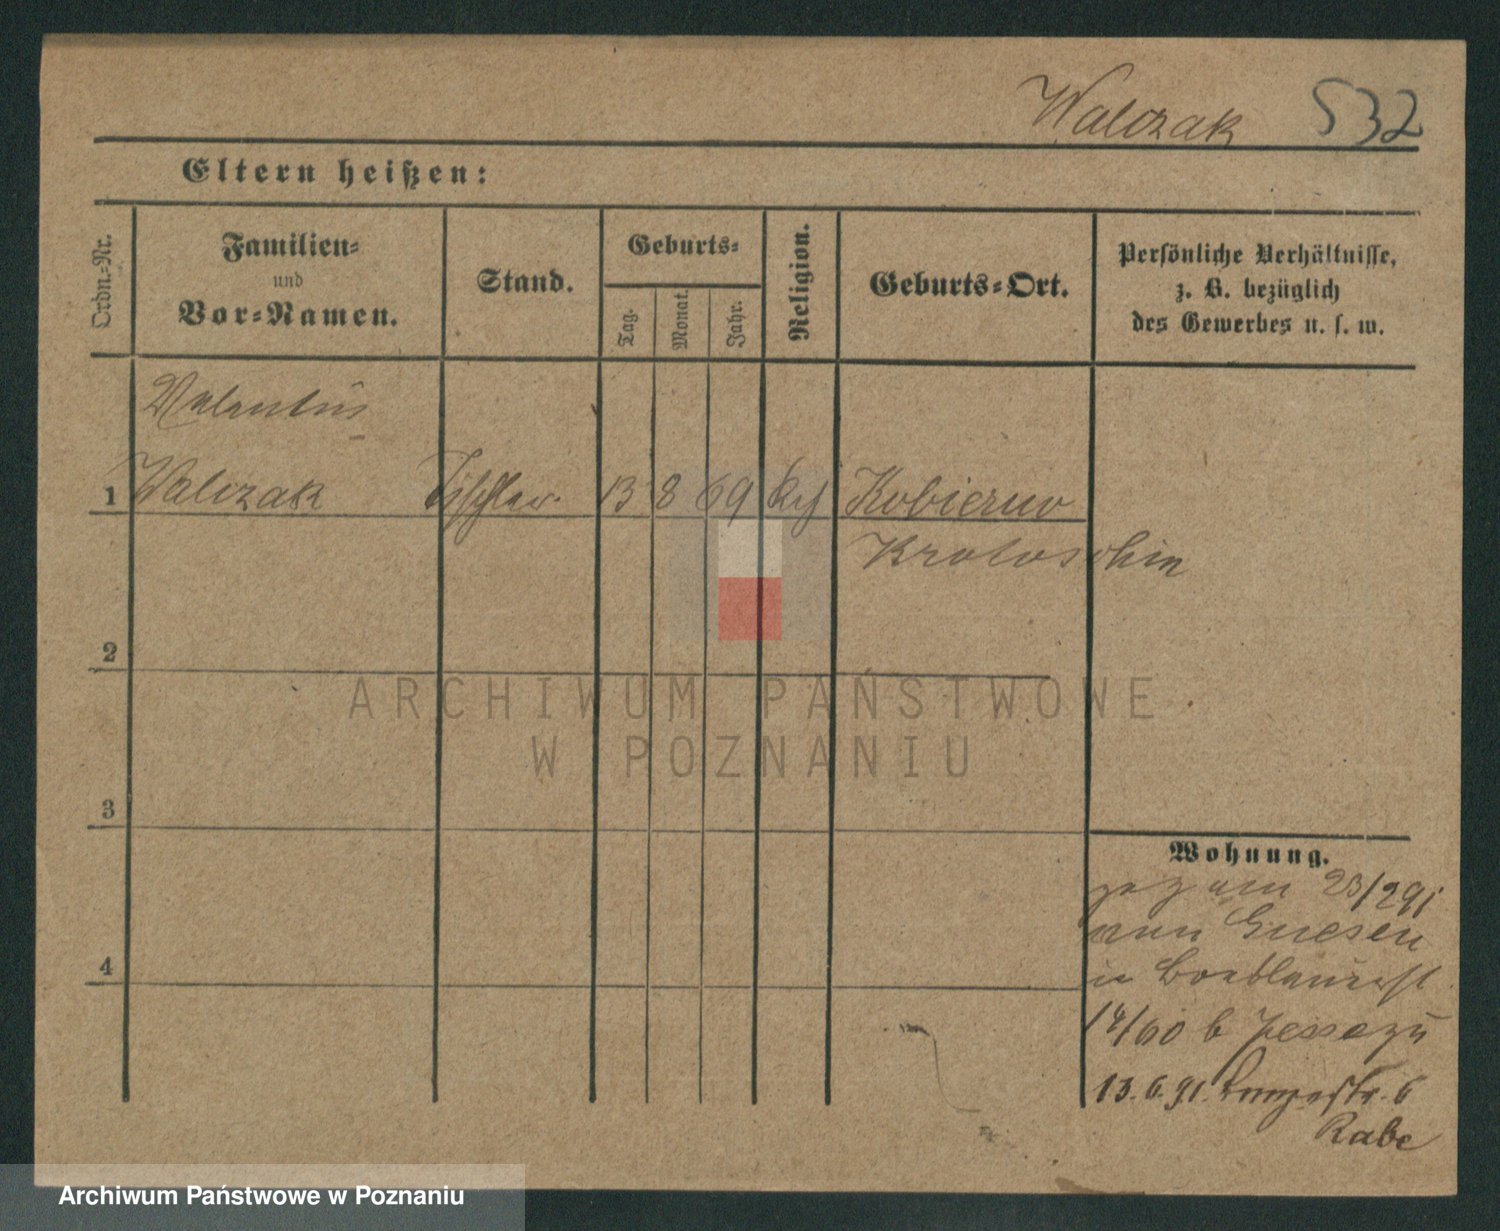 Walczak 532
Eltern heißen:
Ordn.-Nr.
Familien-
und
Vor-Namen.
Stand.
Geburts-
Tag.
Monat.
Jahr.
Religion.
Geburts-Ort.
Persönliche Verhältnisse,
z. B. bezüglich
des Gewerbes u. s. w.
Valentin
1 Walczak Tischler 13 8 69 Kobierno
Krotoschin
2
3
4
Wohnung.
am 23/2 91
Gnesen
in
14/60 b
13.6.91. 6
Rabe
ARCHIWUM PAŃSTWOWE
W POZNANIU
Archiwum Państwowe w Poznaniu